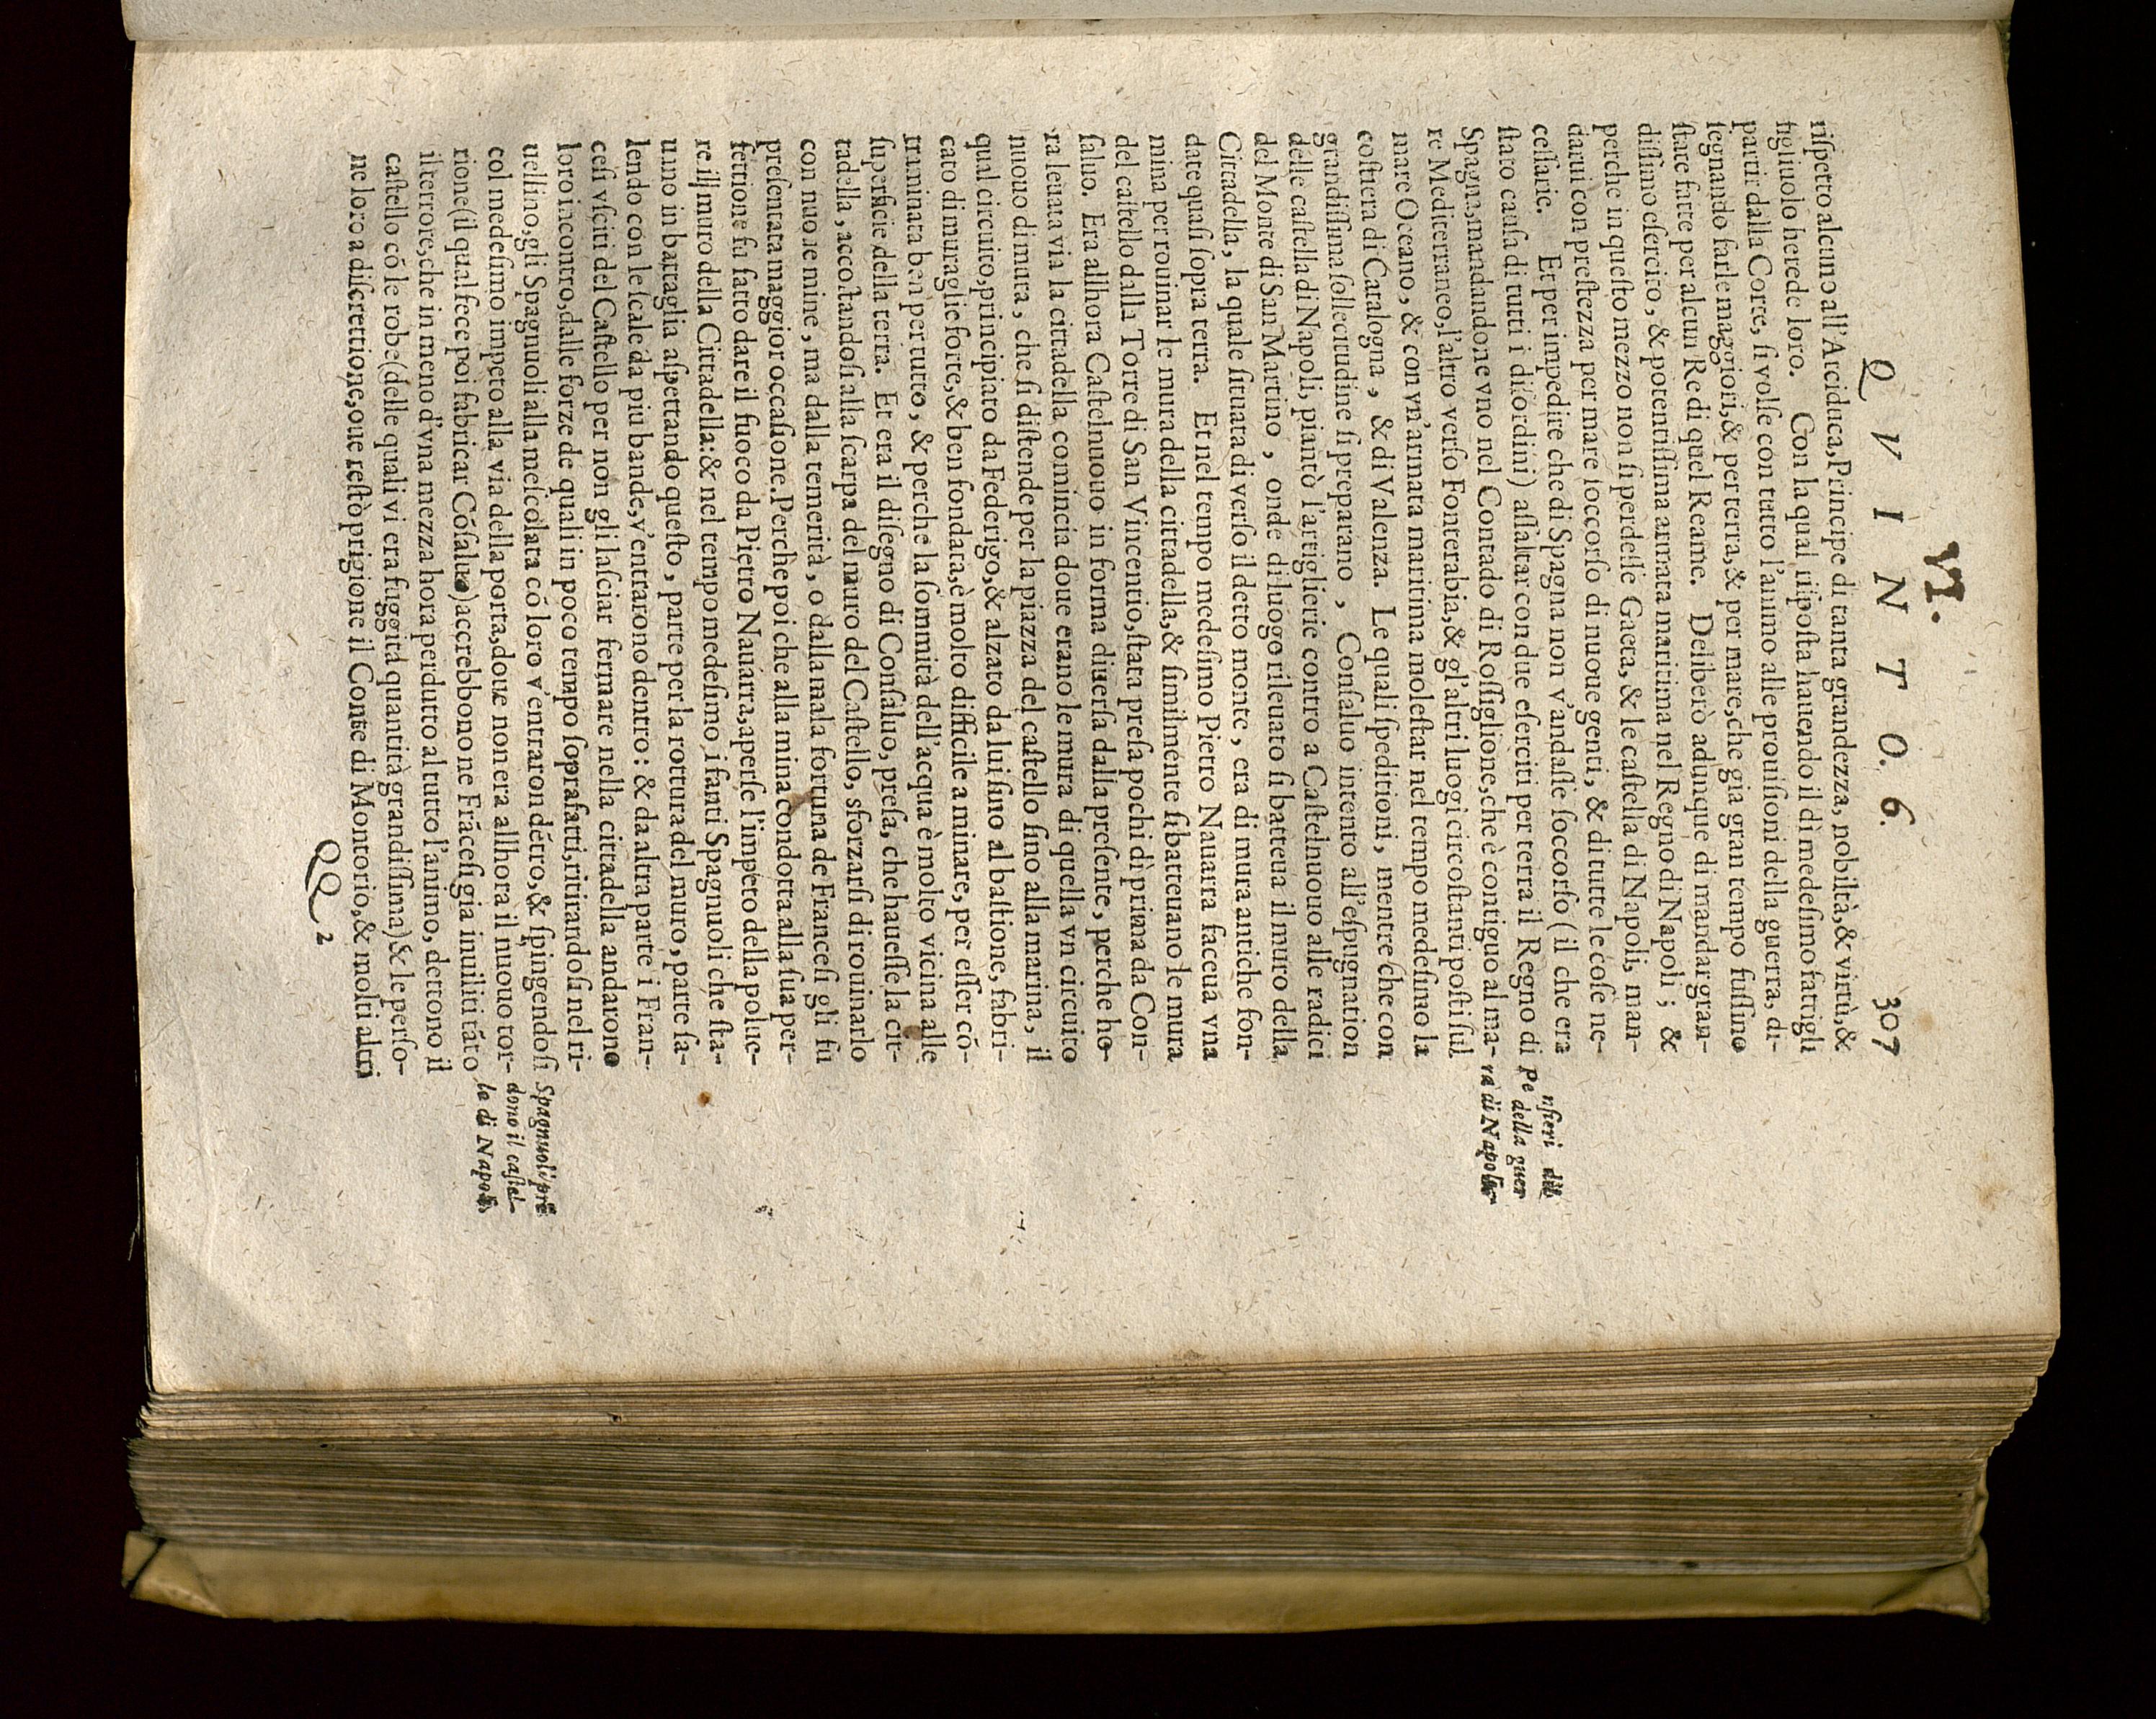 VI.
QVINTO. 6. 307
riſpetto alcuno all'Arciduca, Principe di tanta grandezza, nobiltà, & virtù, &
figliuolo herede loro. Con la qual riſpoſta hauendo il dì medeſimo fattigli
partir dalla Corte, ſi volſe con tutto l'animo alle prouiſioni della guerra, di-
ſegnando farle maggiori, & per terra, & per mare, che gia gran tempo fuſſino
ſtate fatte per alcun Re di quel Reame. Deliberò adunque di mandar gran-
diſſimo eſercito, & potentiſſima armata maritima nel Regno di Napoli; &
perche in queſto mezzo non ſi perdeſſe Gaeta, & le caſtella di Napoli, man-
darui con preſtezza per mare ſoccorſo di nuoue genti, & di tutte le coſe ne-
ceſſarie. Et per impedire che di Spagna non v'andaſſe ſoccorſo (il che era
ſtato cauſa di tutti i diſordini) aſſaltar con due eſerciti per terra il Regno di
Spagna, mandandone vno nel Contado di Roſſiglione, che è contiguo al ma-
re Mediterraneo, l'altro verſo Fonterabia, & gl'altri luogi circoſtanti poſti ſul
mare Oceano, & con vn'armata maritima moleſtar nel tempo medeſimo la
coſtiera di Catalogna, & di Valenza. Le quali ſpeditioni, mentre che con
grandiſſima ſollecitudine ſi preparano, Conſaluo intento all'eſpugnation
delle caſtella di Napoli, piantò l'artiglierie contro a Caſtelnuouo alle radici
del Monte di San Martino, onde di luogo rileuato ſi batteua il muro della
Cittadella, la quale ſituata di verſo il detto monte, era di mura antiche fon-
date quaſi ſopra terra. Et nel tempo medeſimo Pietro Nauarra faceua vna
mina per rouinar le mura della cittadella, & ſimilmente ſi batteuano le mura
del caſtello dalla Torre di San Vincentio, ſtata preſa pochi dì prima da Con-
ſaluo. Era allhora Caſtelnuouo in forma diuerſa dalla preſente, perche ho-
ra leuata via la cittadella, comincia doue erano le mura di quella vn circuito
nuouo di mura, che ſi diſtende per la piazza del caſtello ſino alla marina, il
qual circuito, principiato da Federigo, & alzato da lui ſino al baſtione, fabri-
cato di muraglie forte, & ben fondata, è molto difficile a minare, per eſſer cō-
traminata ben per tutto, & perche la ſommità dell'acqua è molto vicina alle
ſuperficie della terra. Et era il diſegno di Conſaluo, preſa, che haueſſe la cit-
tadella, accoſtandoſi alla ſcarpa del muro del Caſtello, sforzarſi di rouinarlo
con nuoue mine, ma dalla temerità, o dalla mala fortuna de Franceſi gli fu
preſentata maggior occaſione. Perche poi che alla mina condotta alla ſua per-
fettione fu fatto dare il fuoco da Pietro Nauarra, aperſe l'impeto della polue-
re il muro della Cittadella: & nel tempo medeſimo i fanti Spagnuoli che ſta-
uano in battaglia aſpettando queſto, parte per la rottura del muro, parte ſa-
lendo con le ſcale da piu bande, v'entrarono dentro: & da altra parte i Fran-
ceſi vſciti del Caſtello per non gli laſciar fermare nella cittadella andarono
loro incontro, dalle forze de quali in poco tempo ſoprafatti, ritirandoſi nel ri-
uellino, gli Spagnuoli alla meſcolata cō loro v'entraron dētro, & ſpingendoſi
col medeſimo impeto alla via della porta, doue non era allhora il nuouo tor-
rione (il qual fece poi fabricar Cōſaluo) accrebbono ne Frāceſi gia inuiliti tāto
il terrore, che in meno d'vna mezza hora perdutto al tutto l'animo, dettono il
caſtello cō le robe (delle quali vi era fuggita quantità grandiſſima) & le perſo-
ne loro a diſcrettione, oue reſtò prigione il Conte di Montorio, & molti altri
QQ 2
Pe nſieri del
della guer
ra di Napoli
Spagnuoli pre
dono il caſtel-
lo di Napoli,